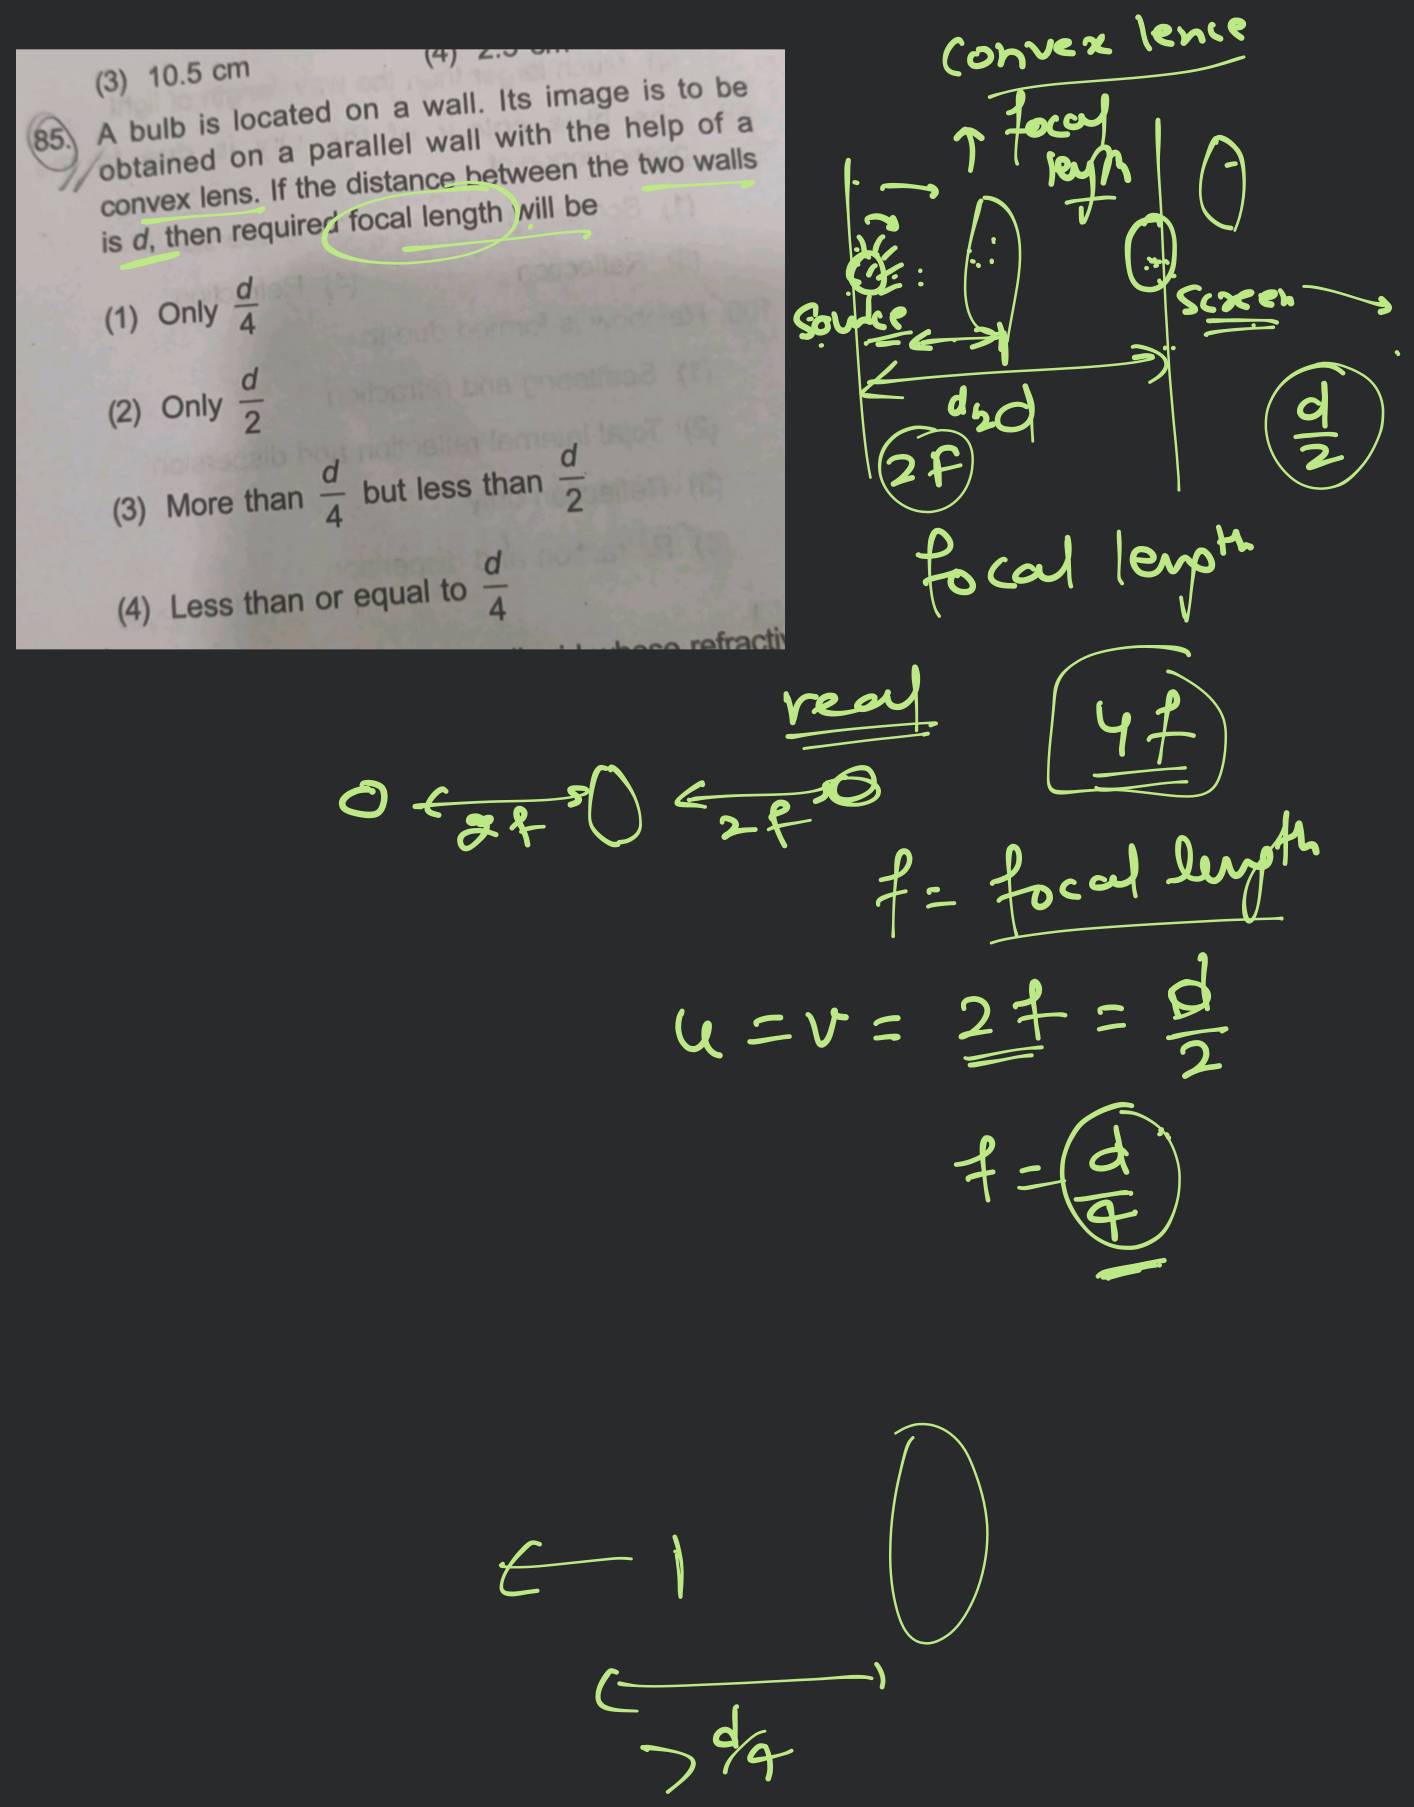 (3) 10.5 cm
(4) 2.5 cm
85. A bulb is located on a wall. Its image is to be
obtained on a parallel wall with the help of a
convex lens. If the distance between the two walls
is d, then required focal length will be
(1) Only d/4
(2) Only d/2
(3) More than d/4 but less than d/2
(4) Less than or equal to d/4
refracti
convex lence
focal
length
source
screen
d
2f
d/2
focal length
real
4f
2f
2f
f = focal length
u = v = 2f = d/2
f = d/4
> d/4